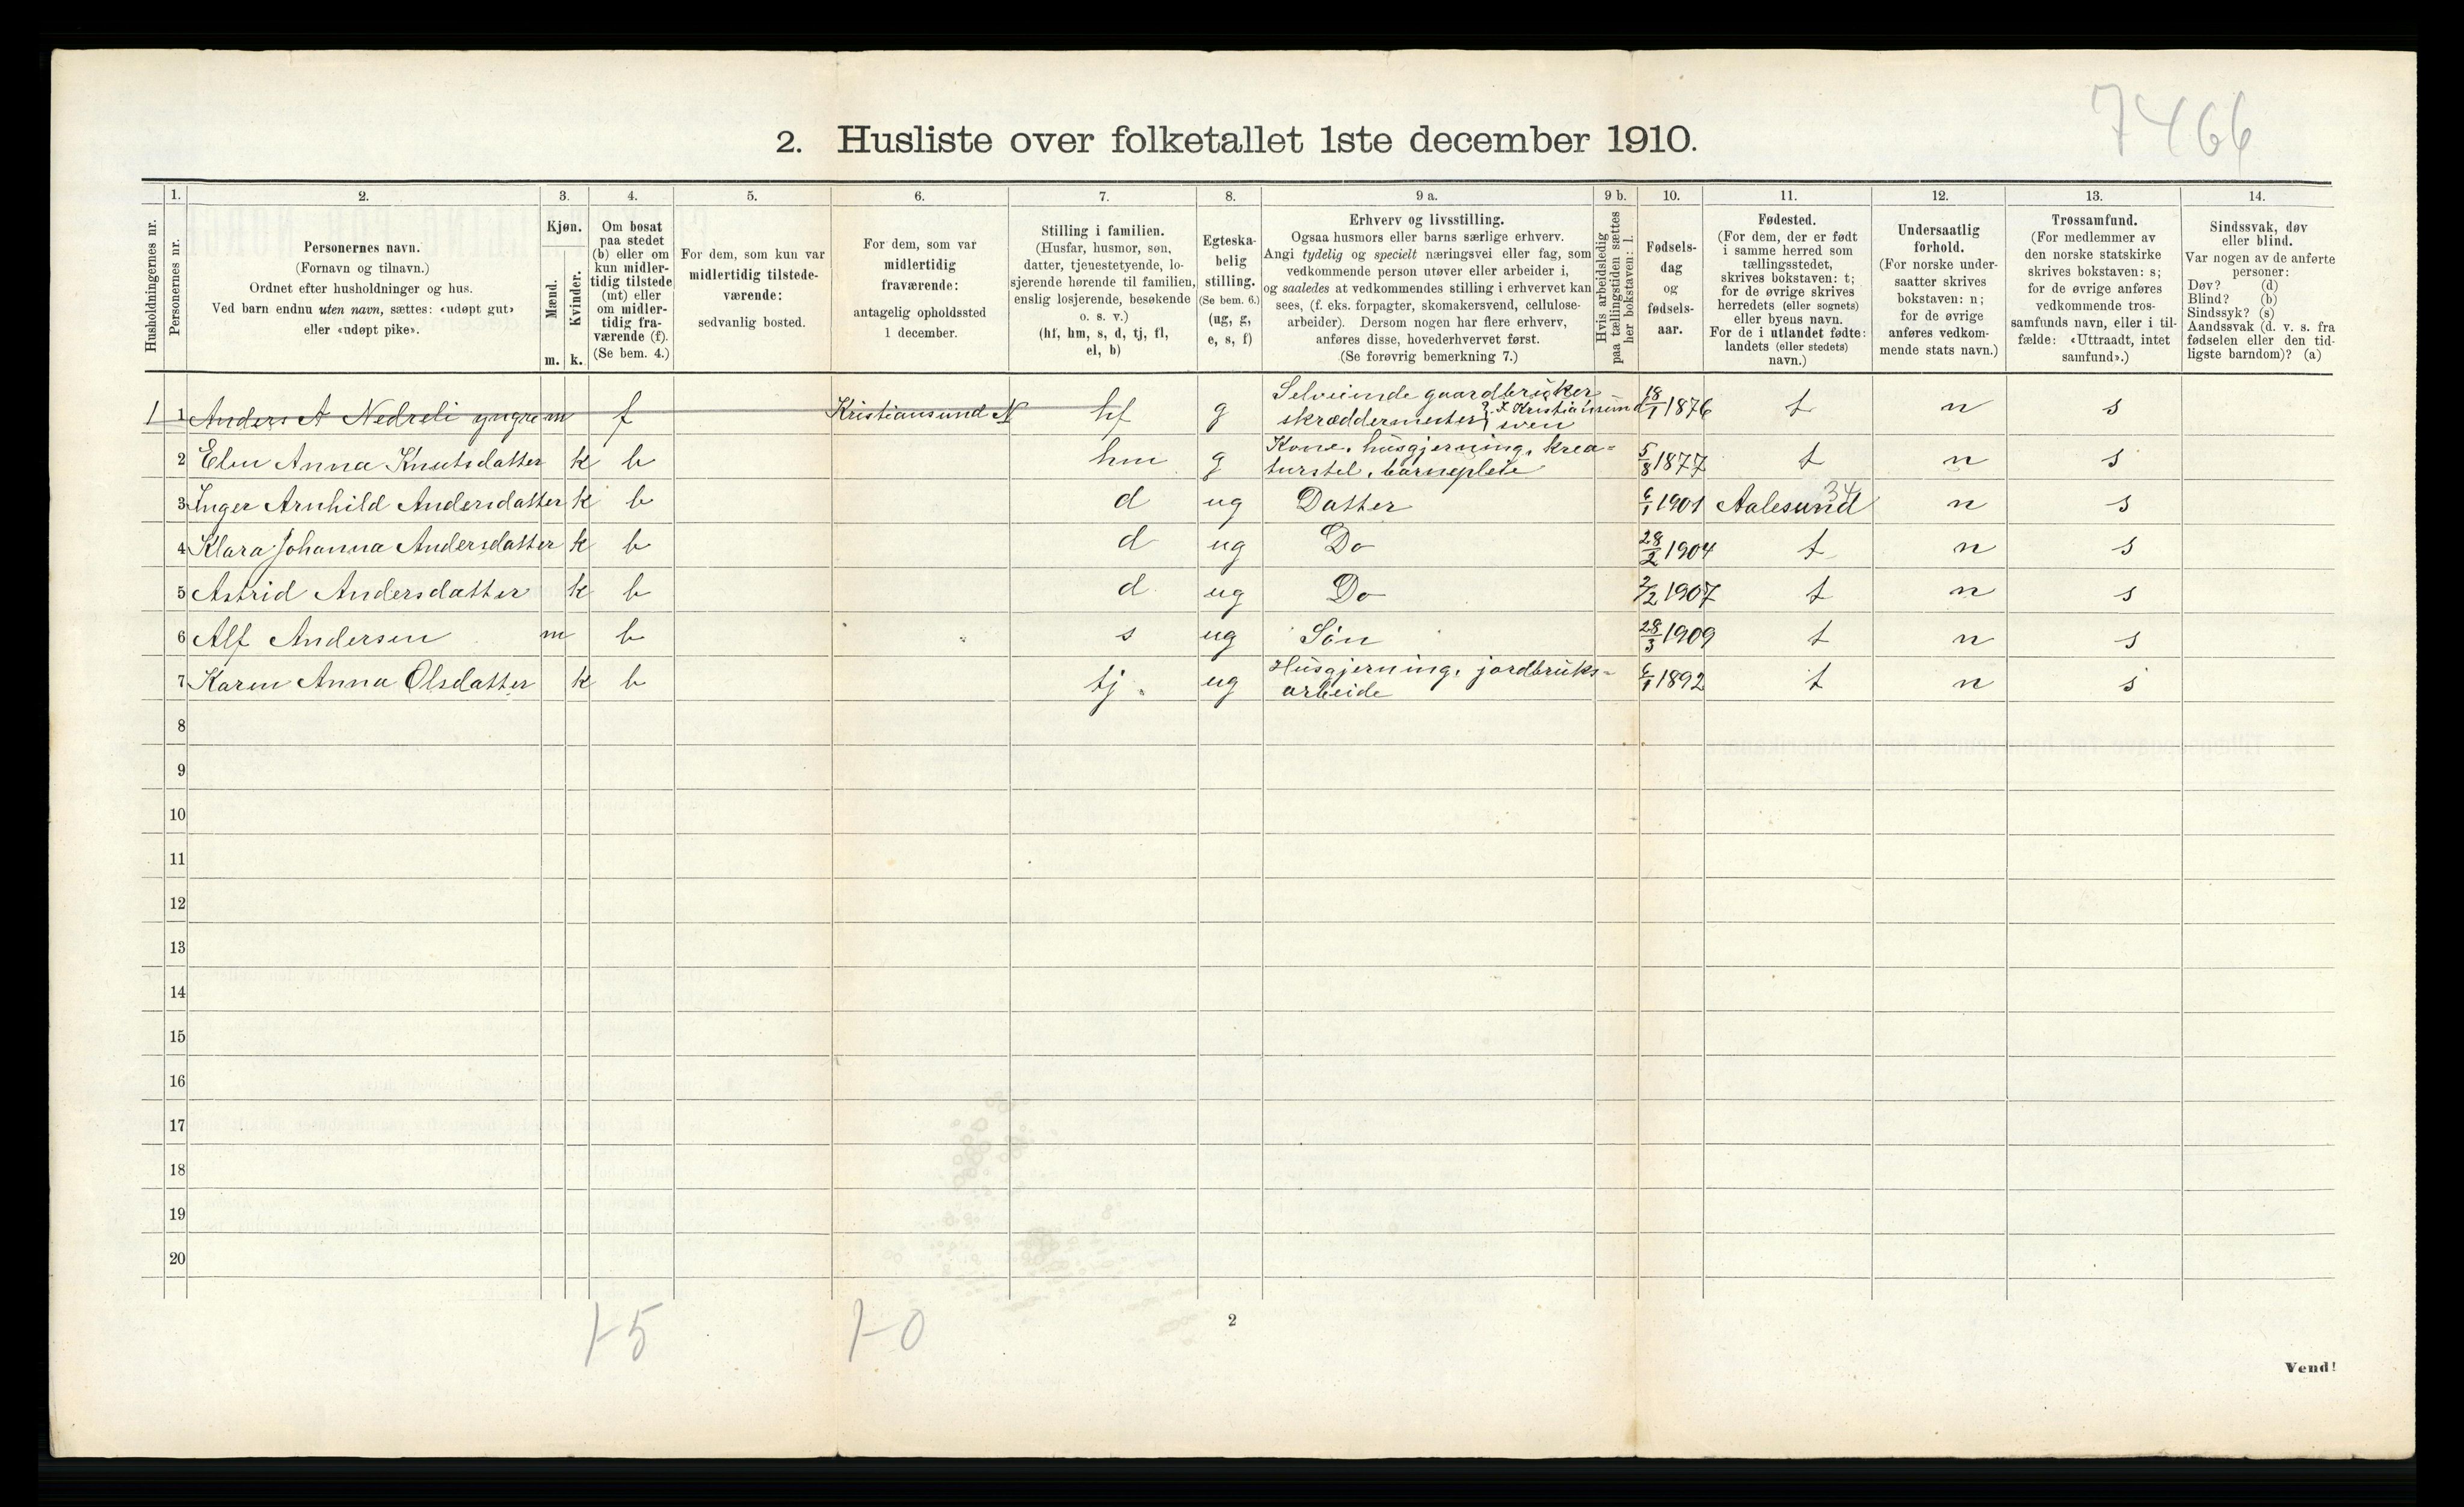 7466
2. Husliste over folketallet 1ste december 1910.
Husholdningernes nr.
1.
Personernes nr.
2.
Personernes navn.
(Fornavn og tilnavn.)
Ordnet efter husholdninger og hus.
Ved barn endnu uten navn, sættes: «udøpt gut»
eller «udøpt pike».
3.
Kjøn.
Mænd.
m.
Kvinder.
k.
4.
Om bosat
paa stedet
(b) eller om
kun midler-
tidig tilstede
(mt) eller
om midler-
tidig fra-
værende (f).
(Se bem. 4.)
5.
For dem, som kun var
midlertidig tilstede-
værende:
sedvanlig bosted.
6.
For dem, som var
midlertidig
fraværende:
antagelig opholdssted
1 december.
7.
Stilling i familien.
(Husfar, husmor, søn,
datter, tjenestetyende, lo-
sjerende hørende til familien,
enslig losjerende, besøkende
o. s. v.)
(hf, hm, s, d, tj, fl,
el, b)
8.
Egteska-
belig
stilling.
(Se bem. 6.)
(ug, g,
e, s, f)
9 a.
Erhverv og livsstilling.
Ogsaa husmors eller barns særlige erhverv.
Angi tydelig og specielt næringsvei eller fag, som
vedkommende person utøver eller arbeider i,
og saaledes at vedkommendes stilling i erhvervet kan
sees, (f. eks. forpagter, skomakersvend, cellulose-
arbeider). Dersom nogen har flere erhverv,
anføres disse, hovederhvervet først.
(Se forøvrig bemerkning 7.)
9 b.
Hvis arbeidsledig
paa tællingstiden sættes
her bokstaven: l.
10.
Fødsels-
dag
og
fødsels-
aar.
11.
Fødested.
(For dem, der er født
i samme herred som
tællingsstedet,
skrives bokstaven: t;
for de øvrige skrives
herredets (eller sognets)
eller byens navn.
For de i utlandet fødte:
landets (eller stedets)
navn.)
12.
Undersaatlig
forhold.
(For norske under-
saatter skrives
bokstaven: n;
for de øvrige
anføres vedkom-
mende stats navn.)
13.
Trossamfund.
(For medlemmer av
den norske statskirke
skrives bokstaven: s;
for de øvrige anføres
vedkommende tros-
samfunds navn, eller i til-
fælde: «Uttraadt, intet
samfund».)
14.
Sindssvak, døv
eller blind.
Var nogen av de anførte
personer:
Døv? (d)
Blind? (b)
Sindssyk? (s)
Aandssvak (d. v. s. fra
fødselen eller den tid-
ligste barndom)? (a)
1 1 Anders A Nedreli yngre m f Kristiansund N hf g Selveiende gaardbruker skræddermester I Kristiansund 18/1 1876 t n s
2 Elen Anna Knutsdatter k b hm g Kone, husgjerning, krea-
turstel, barnepleie 5/8 1877 t n s
3 Inger Arnhild Andersdatter k b d ug Datter 6/1 1901 Aalesund 34 n s
4 Klara Johanna Andersdatter k b d ug Do 28/2 1904 t n s
5 Astrid Andersdatter k b d ug Do 2/2 1907 t n s
6 Alf Andersen m b s ug Søn 28/3 1909 t n s
7 Karen Anna Olsdatter k b tj. ug Husgjerning, jordbruks-
arbeide 6/1 1892 t n s
8
9
10
11
12
13
14
15
16
17
18
19
20
1-5 1-0
2
Vend!